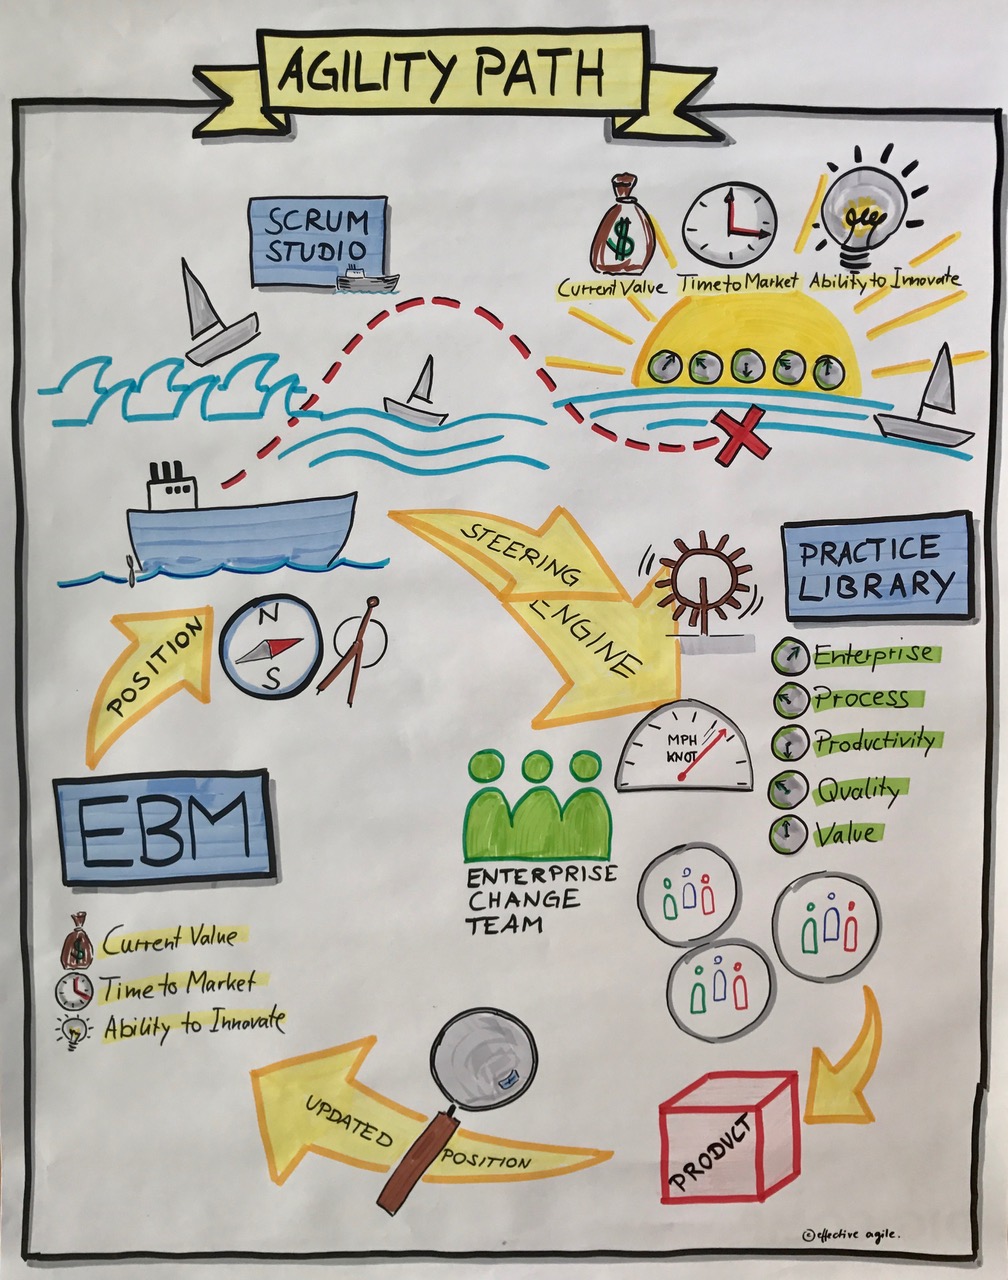 AGILITY PATH
SCRUM
STUDIO
$
Current Value
Time to Market
Ability to Innovate
STEERING
ENGINE
PRACTICE
LIBRARY
POSITION
N
S
Enterprise
Process
Productivity
Quality
Value
MPH
KNOT
EBM
ENTERPRISE
CHANGE
TEAM
$
Current Value
Time to Market
Ability to Innovate
UPDATED
POSITION
PRODUCT
©effective agile.